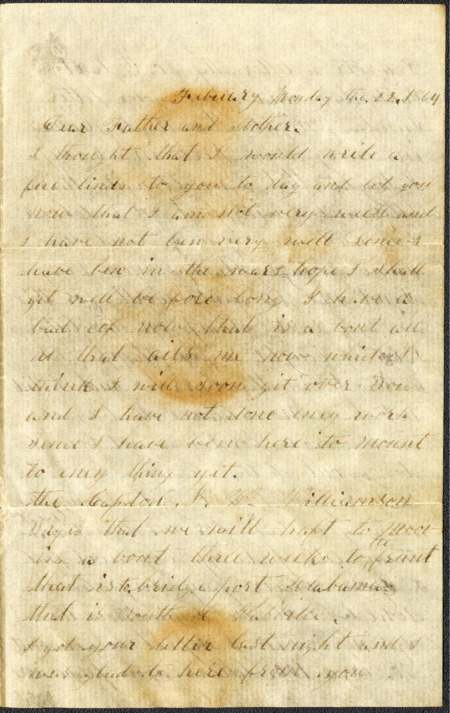 February Monday the 22. 1864
Dear Father and Mother.
I thought that I would write a
few lines to you to day and let you
now that I am not very well and
I have not ben very well sence I
have ben in the I hope I shall
git well be fore long I have a
bad cof now that is a bout all
it that ails me now
think I will soon git over
and I have not done eney work
sence I have ben here to mount
to eney thing yet.
the Capton Williamson
Says that we will haft to moov
in a bout three weeks to the frunt
that is to bridgeport Alabama
that is South of
I got your letter last night and I
was glad to here from you